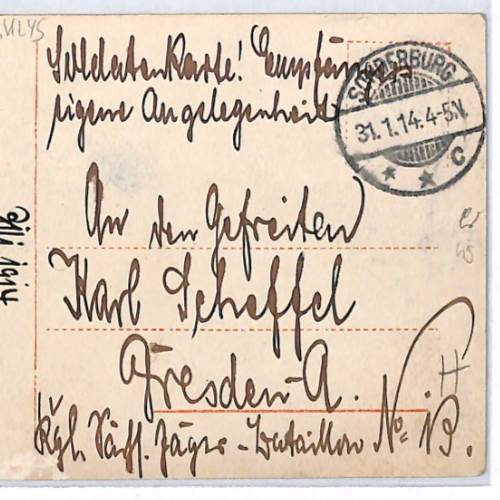 Soldatenkarte! Empfängers
eigene Angelegenheit
SONDERBURG
31.1.14.4-5N.
* * C
An den Gefreiten
Karl Scheffel
Dresden-A.
Kgl. Sächs. Jäger-Bataillon No. 13.